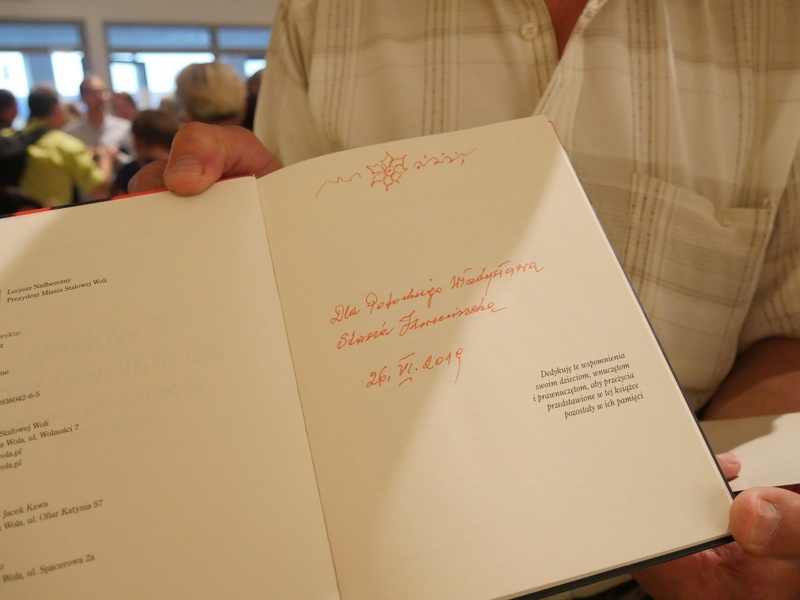 Łucjusz Nadbereżny
Prezydent Miasta Stalowej Woli
936042-6-5
Stalowej Woli
Wola, ul. Wolności 7
Jacek Kawa
Wola, ul. Ofiar Katynia 57
Wola, ul. Spacerowa 2a
Dla Potockiego Władysława
26. VI. 2019
Dedykuję te wspomnienia
swoim dzieciom, wnuczętom
i prawnuczętom, aby przeżycia
przedstawione w tej książce
pozostały w ich pamięci